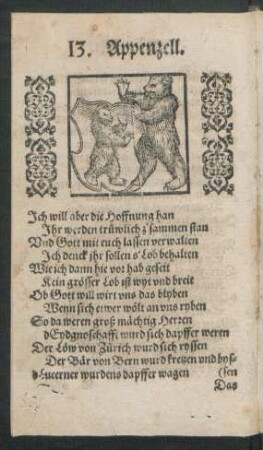 13. Appenzell.
Ich will aber die Hoffnung han
Ihr werden trüwlich z'sammen stan
Vnd Gott mit euch lassen verwalten
Ich denck ihr sollen s'Lob behalten
Wie ich dann hie vor hab geseit
Kein grösser Lob ist wyt vnd breit
Ob Gott will wirt vns das blyben
Wenn sich einer wölt an vns ryben
So da weren groß mächtig Herren
d'Eydgnoschafft wurd sich dapffer weren
Der Löw von Zürich wurd sich ryssen
Der Bär von Bern wurd kretzen vnd bys-
d'Lucerner wurdens dapffer wagen (sen
Das